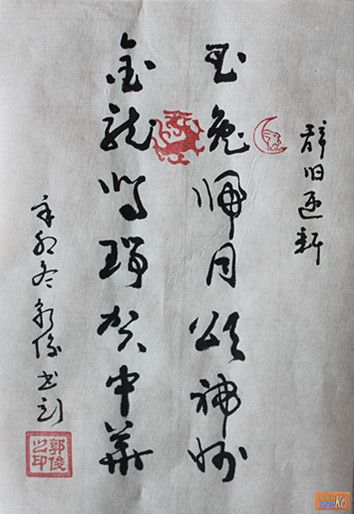 辞旧迎新
玉兔归月颂神州
金龙瑞贺中华
辛卯冬郭俊书
郭俊之印
K6